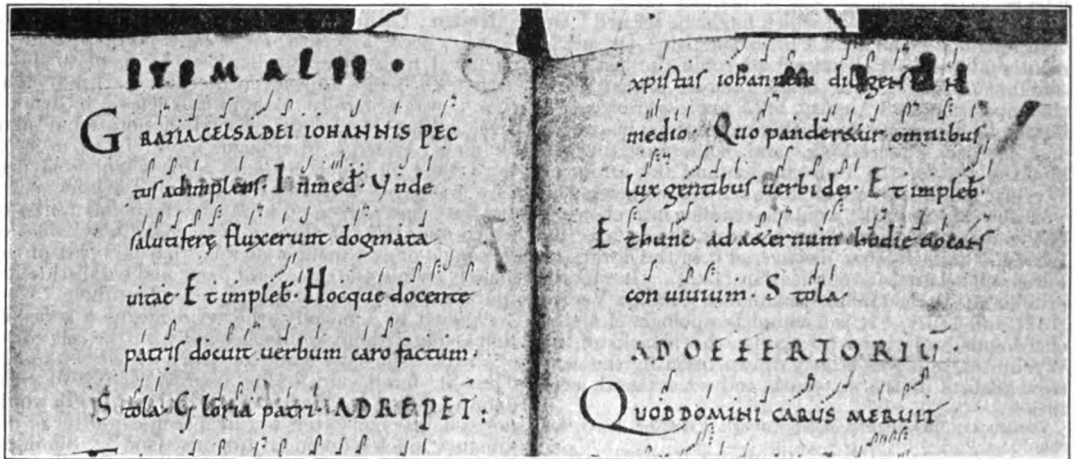 ITEM ALII ·
GRATIA CELSA DEI IOHANNIS PEC
tus adimplens· Inmed̄· Vnde
salutiferę fluxerunt dogmata
uitae· Et impleb̄· Hocque docente
patris docuit uerbum caro factum·
Stola· Gloria patri· ADREPET:
xpistus iohannem diligens in
medio· Quo panderetur omnibus
lux gentibus uerbi dei· Et impleb̄·
Et hunc ad aeternum hodie uocans
conuiuium· Stola·
AD OFFERTORIŪ·
QUOD DOMINI CARUS MERUIT